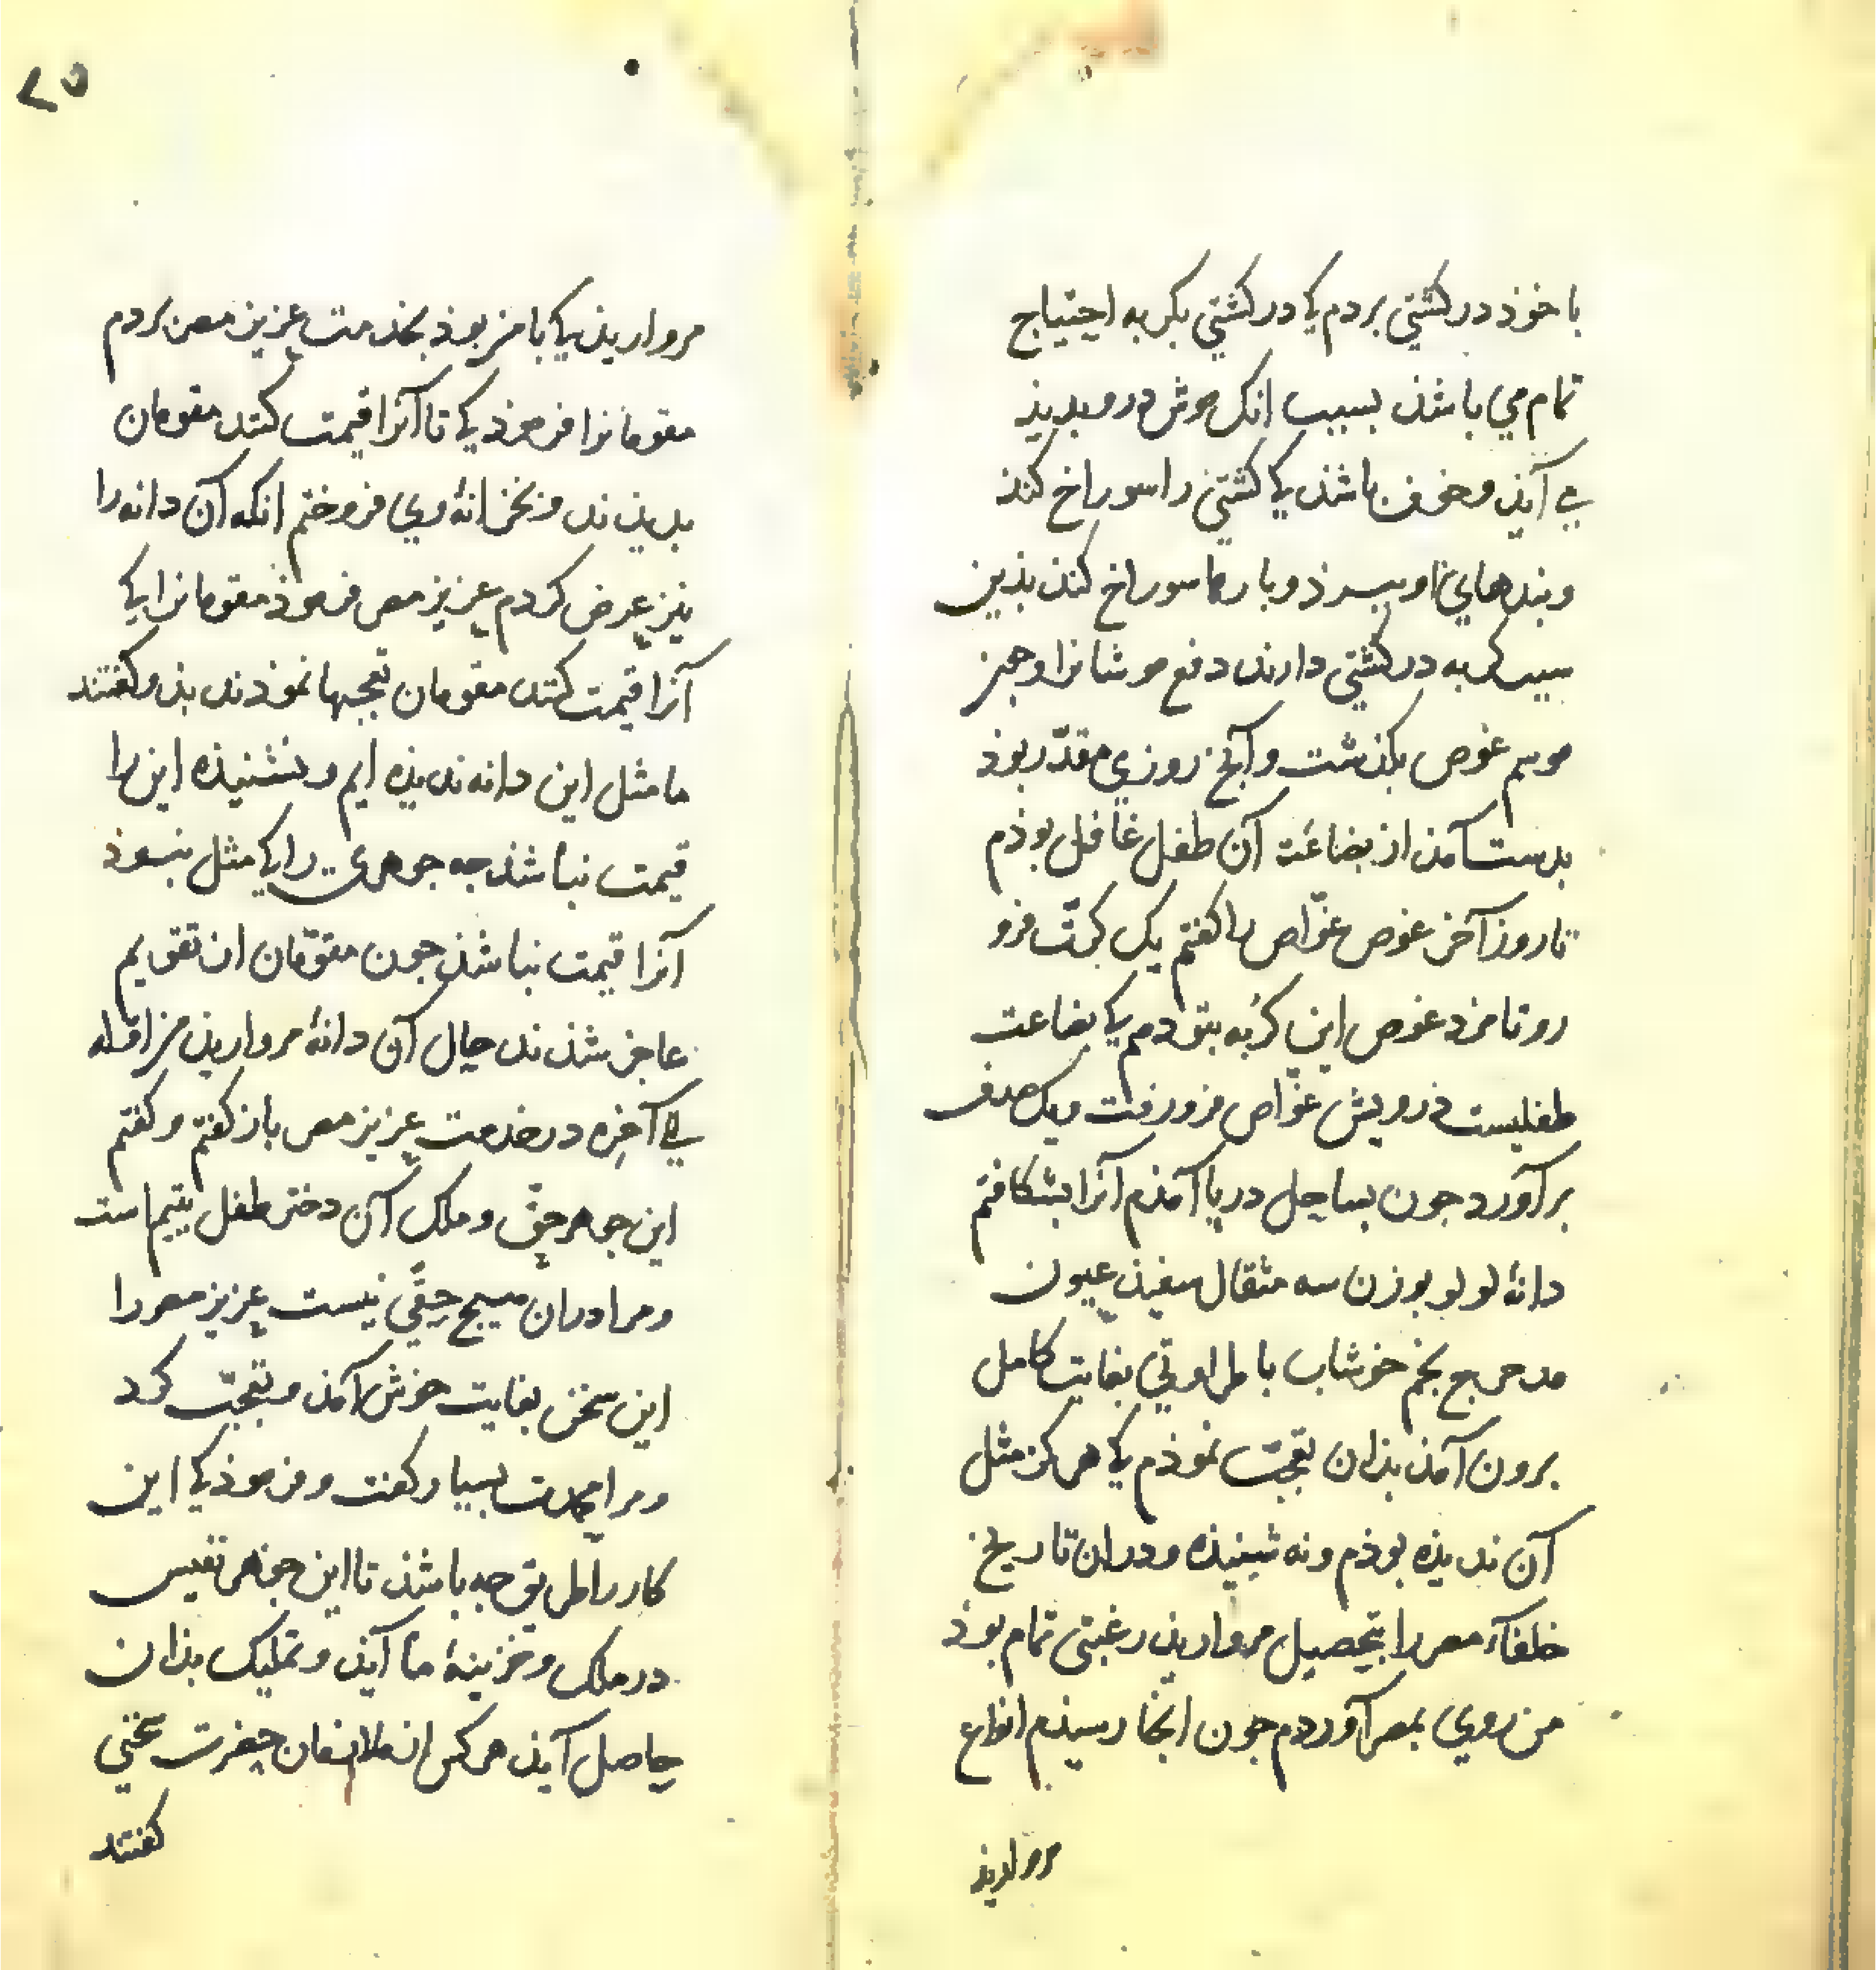 با خوذ در کشتی بردم کی در کشتی بکربه احتیاج
تمام می باشذ بسبب انک موش درو بدیذ
می آیذ و خوف باشذ کی کشتی را سوراخ کند
و بندهای او ببرذ و بارها سوراخ کند بذین
سبب کربه در کشتی دارند دفع موشانرا و جون
موسم غوص بکذشت و آنج روزی مقدّر بوذ
بدست آمذ از بضاعت آن طفل غافل بوذم
تا روز آخر غوص غوّاص را کفتم یک کرّت فرو
رو تا مزد غوص این کربه بتو دهم کی بضاعت
طفلیست درویش غوّاص فرو رفت و یک صدف
برآورد جون بساحل دریا آمذم آنرا بشکافتم
دانهٔ لولو بوزن سه مثقال سفیذ عیون
مدحرج نجم خوشاب با طراوتی بغایت کامل
برون آمذ بذان تعجّب نموذم کی هرکز مثل
آن ندیذه بوذم و نه شنیذه و دران تاریخ
خلفآء مصر را بتحصیل مرواریذ رغبتی تمام بوذ
من روی بمصر آوردم جون انجا رسیذم انواع
مرواریذ
۲۵
مرواریذ کی با من بوذ بخذمت عزیز مصر بردم
مقومانرا فرموذ کی تا آنرا قیمت کنند مقومان
بدیذند و بخزانهٔ وی فروختم انکه آن دانه را
نیز عرض کردم عزیز مصر فرموذ مقومانرا کی
آنرا قیمت کنند مقومان تعجبها نموذند بذو کفتند
ما مثل این دانه ندیذه ایم و نشنیذه این را
قیمت نباشذ جه جوهری را کی مثل نبوذ
آنرا قیمت نباشذ جون مقوّمان از تقویم
عاجز شذند حال آن دانهٔ مرواریذ من اوّله
الی آخره در خذمت عزیز مصر باز کفتم و کفتم
این جوهر حقّ و ملک آن دختر طفل یتیم است
و مرا دران هیج حقّی نیست عزیز مصر را
این سخن بغایت خوش آمذ و تعجّب کرد
و مرا محمدت بسیار کفت و فرموذ کی این
کار را طریق جه باشذ تا این جوهر نفیس
در ملک و خزینهٔ ما آیذ و تملیک بذان
حاصل آیذ هر کس از ملازمان حضرت سخنی
کفتند